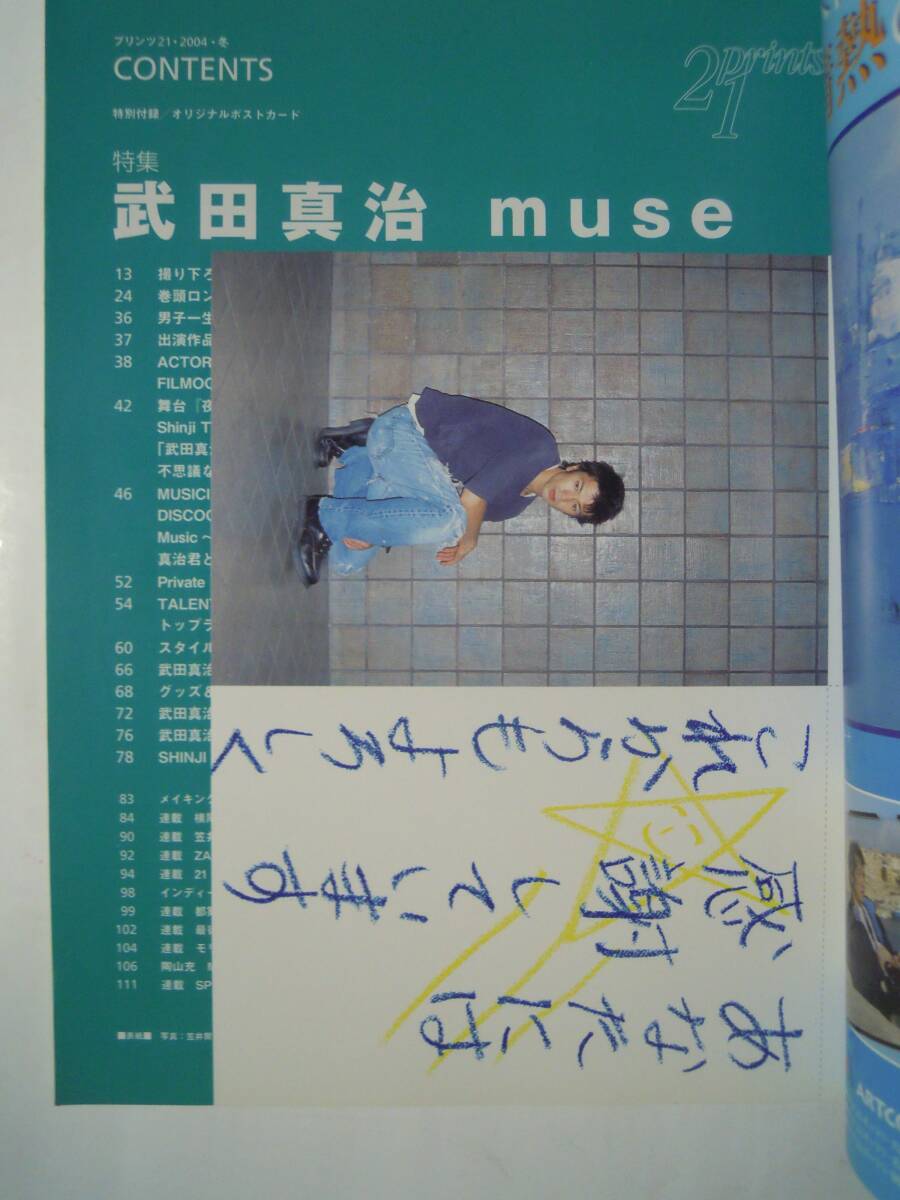 プリンツ21・2004・冬
CONTENTS
21 prints
特別付録／オリジナルポストカード
特集
武田真治 muse
13 撮り下ろ
24 巻頭ロン
36 男子一生
37 出演作品
38 ACTOR
FILMOG
42 舞台『夜
Shinji T
「武田真
不思議な
46 MUSICI
DISCOG
Music～
真治君と
52 Private
54 TALENT
トップラ
60 スタイル
66 武田真治
68 グッズ&
72 武田真治
76 武田真治
78 SHINJI
83 メイキング
84 連載 横尾
90 連載 笠井
92 連載 ZA
94 連載 21
98 インディー
99 連載 都築
102 連載 最後
104 連載 モリ
106 陶山充
111 連載 SP
■表紙■ 写真：笠井爾
あなたには
感謝しています
これからもよろしく
熱
ARTCO